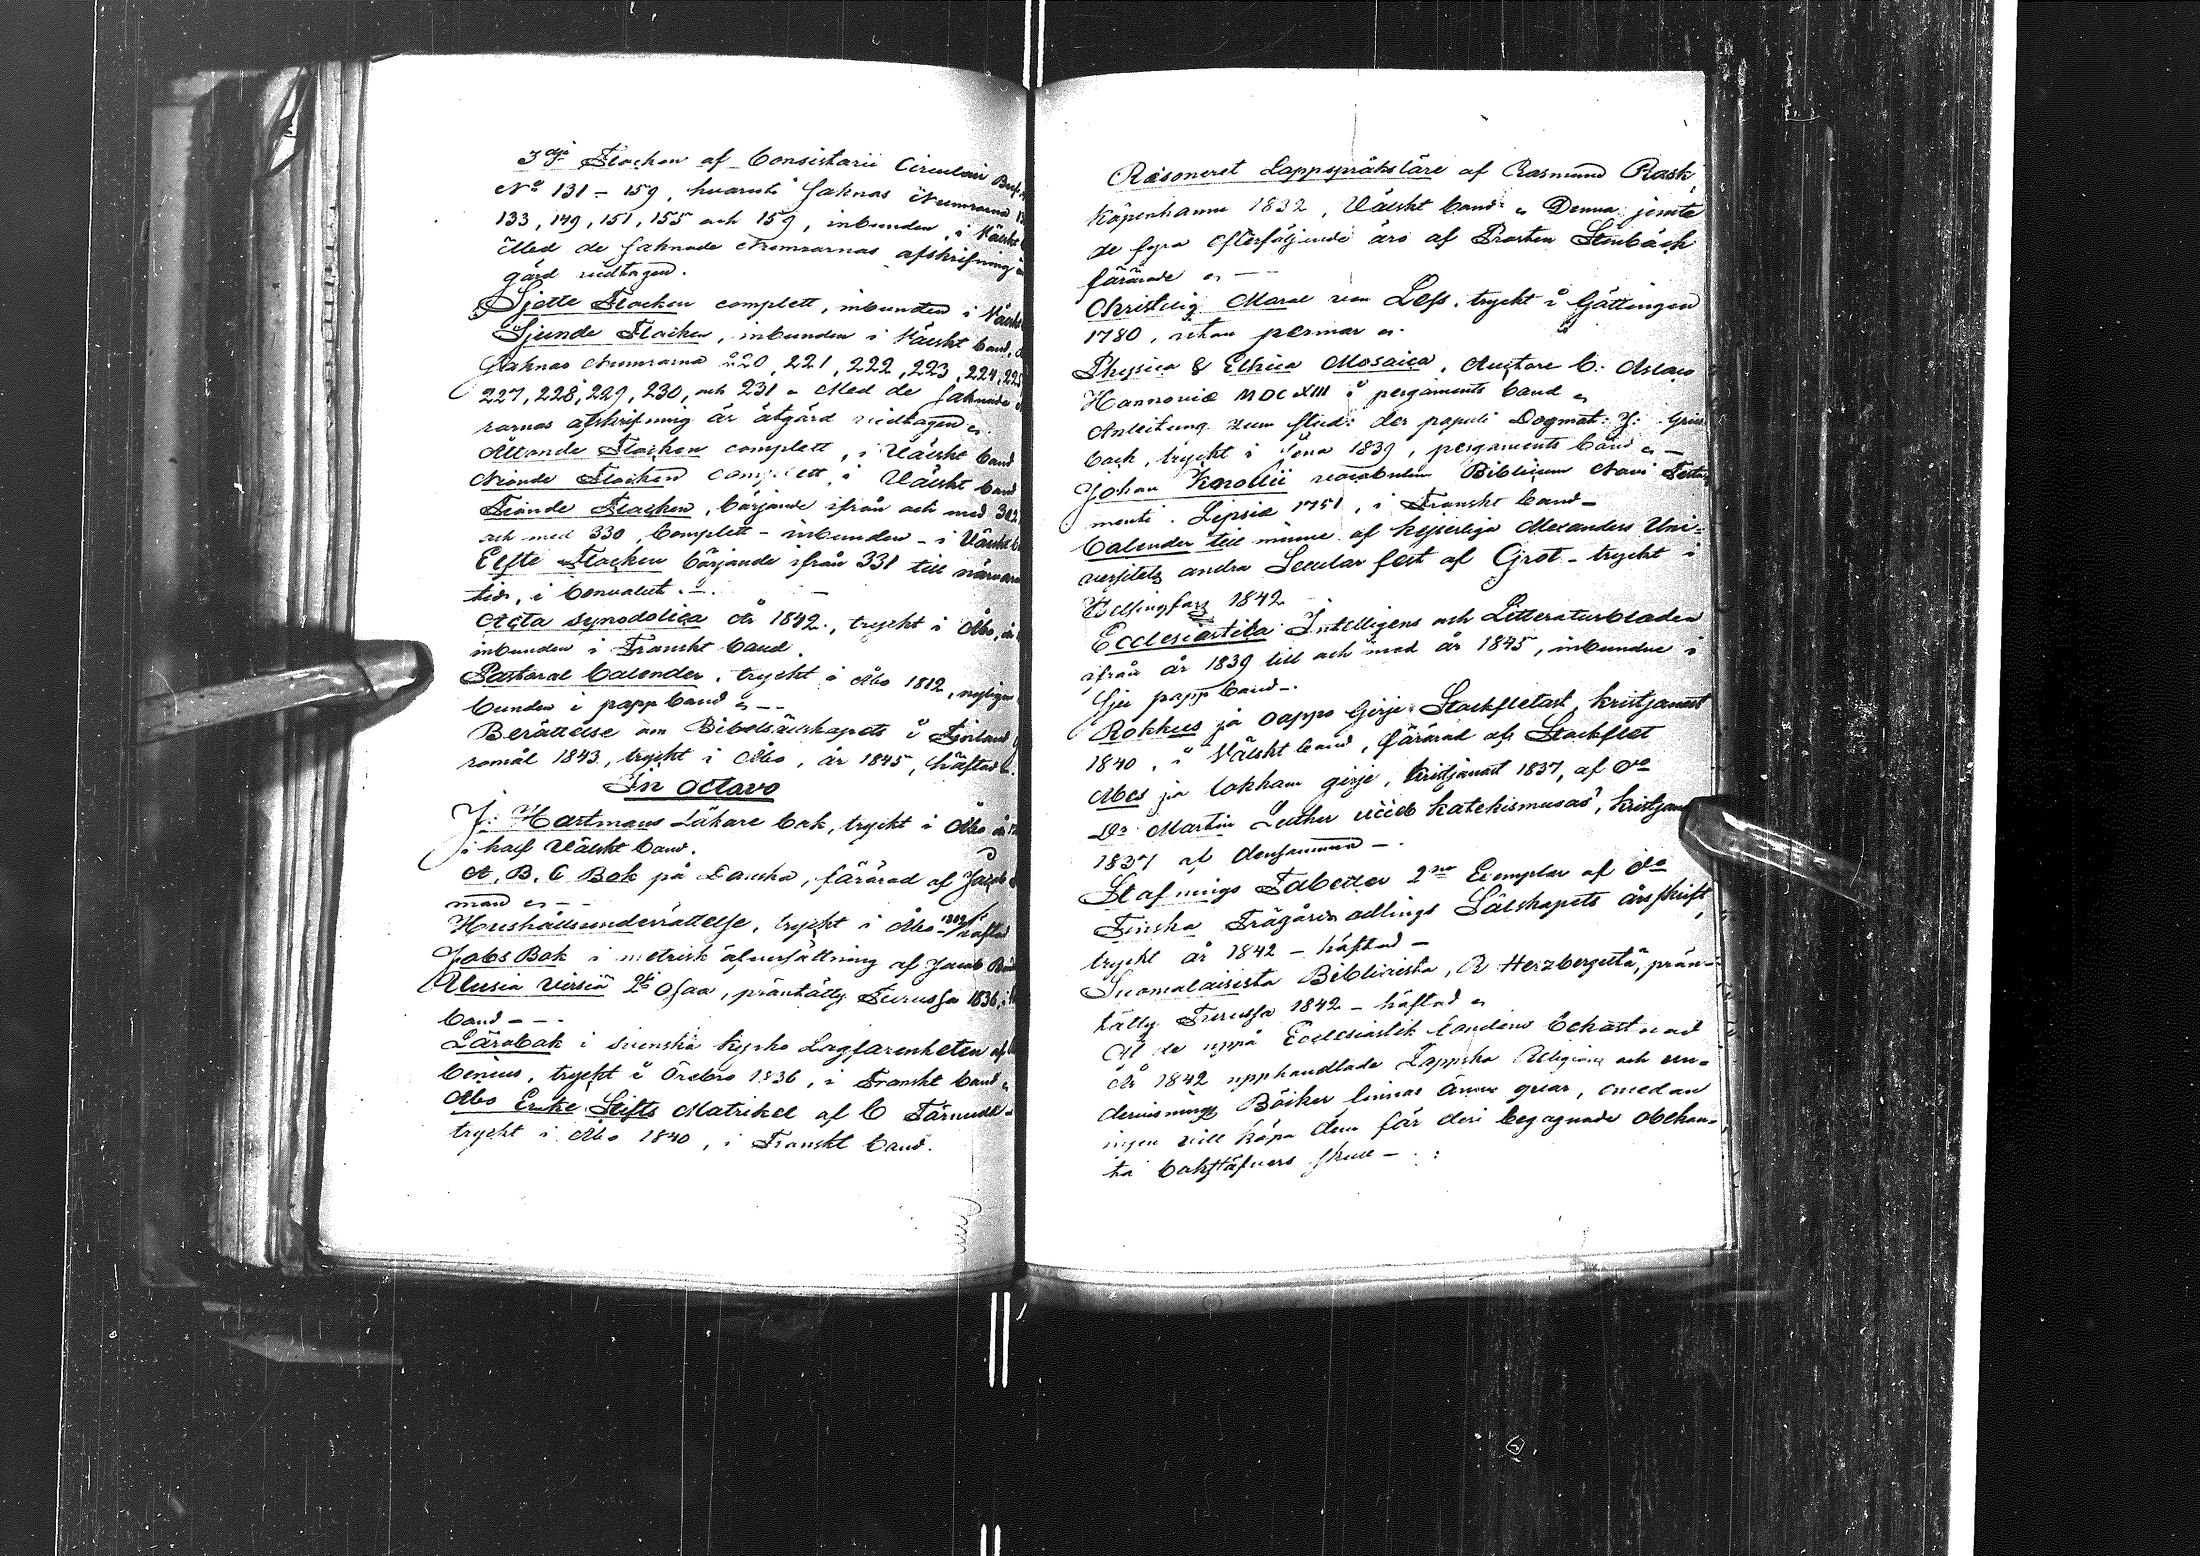 3dje Flocken af Consistorii Circulair Bref
No 131 - 159, hvarest saknas Numrorna
133, 149, 151, 155 och 159, inbunden, i Wälskt
Med de saknade Numrornas afskrifning
gärd vidtagen.
Sjette Flocken complett, inbunden i Wälskt
Sjunde Flocken, inbunden i Wälskt band,
saknas Numrorna 220, 221, 222, 223, 224, 225
227, 228, 229, 230, och 231 Med de saknade
rornas afskrifning är åtgärd vidtagen.
Åttonde Flocken complett, i Wälskt band
Nionde Flocken complett, i Wälskt band
Tionde Flocken, börjande ifrån och med 302
och med 330, Complett - inbunden - i Wälskt
Elfte Flocken börjande ifrån 331 till närvarande
tid, i Convolut.
Acta synodolica År 1842, tryckt i Åbo,
inbunden i Franskt band.
Pastoral Calender, tryckt i Åbo 1812, nyligen
bunden i papp band
Berättelse om Bibelsällskapets i Finland
romål 1843, tryckt i Åbo, år 1845, häftad
In octavo
J: Hartmans Läkare bok, tryckt i Åbo
i half Wälskt band.
A, B, C Bok på Danska, förärad af Jacob
man
Hushållsunderrättelse, tryckt i Åbo häftad
Jobs Bok i metrisk öfversättning af Jacob
Alusia Virsiä 2si Osaa, präntätty Turussa 1836,
band - - -
Lärobok i svenska kyrko Lagfarenheten af
benius, tryckt i Örebro 1836, i Franskt band
Åbo Erke Stifts Matrikel af C Tärnudd
tryckt i Åbo 1840, i Franskt band.
Räsoneret Lappspråkslære af Rasmund Rask,
Köpenhamn 1832, Wälskt band. Denna jemte
de fyra efterföljande äro af Prosten Stenbäck
förärade
Christelig Moral von Less. tryckt i Göttingen
1780, utan permar
Physica & Ethica Mosaica, Auctore C. Aslaco
Hannoviæ MDCXIII i pergaments band
Anleitung zum stud: der populi Dogmat: J:
back, tryckt i Jena 1839, pergaments band
Johan Knollii vocabulum Biblicum Novi Testa
menti. Lipsiæ 1751, i Franskt band -
Calender till minne af kejserliga Alexanders Uni-
versitets andra Secular fest af Grot - tryckt i
Helsingfors 1842
Ecclesiastika Intelligens och Litteraturbladen
ifrån år 1839 till och med år 1845, inbundne i
papp band -.
Rokkus ja oappo Girje Stockfletast, kristjanast
1840, i Wälskt band, förärad af Stockflet
Abes ja Lokkam girje, kristjanast 1837, af Do
Dr Martin Luther katekismusas, kristjan
1837 af densamma -.
Stafnings Tabeller 2ne Exemplar af Do
Finska Trägårdsodlings Sälskapets årsskrift,
tryckt år 1842 - häftad -
Suomalaisista Biblioista, R Herzbergiltä, prän-
tätty Turussa 1842 - häftad
Af de uppå Ecclesiastik fondens bekostnad
År 1842 upphandlade Lappska Religions och un-
dervisnings Böcker finnas ännu qvar, emedan
ingen vill köpa dem för deri begagnade obekan-
ta bokstäfvers skull -